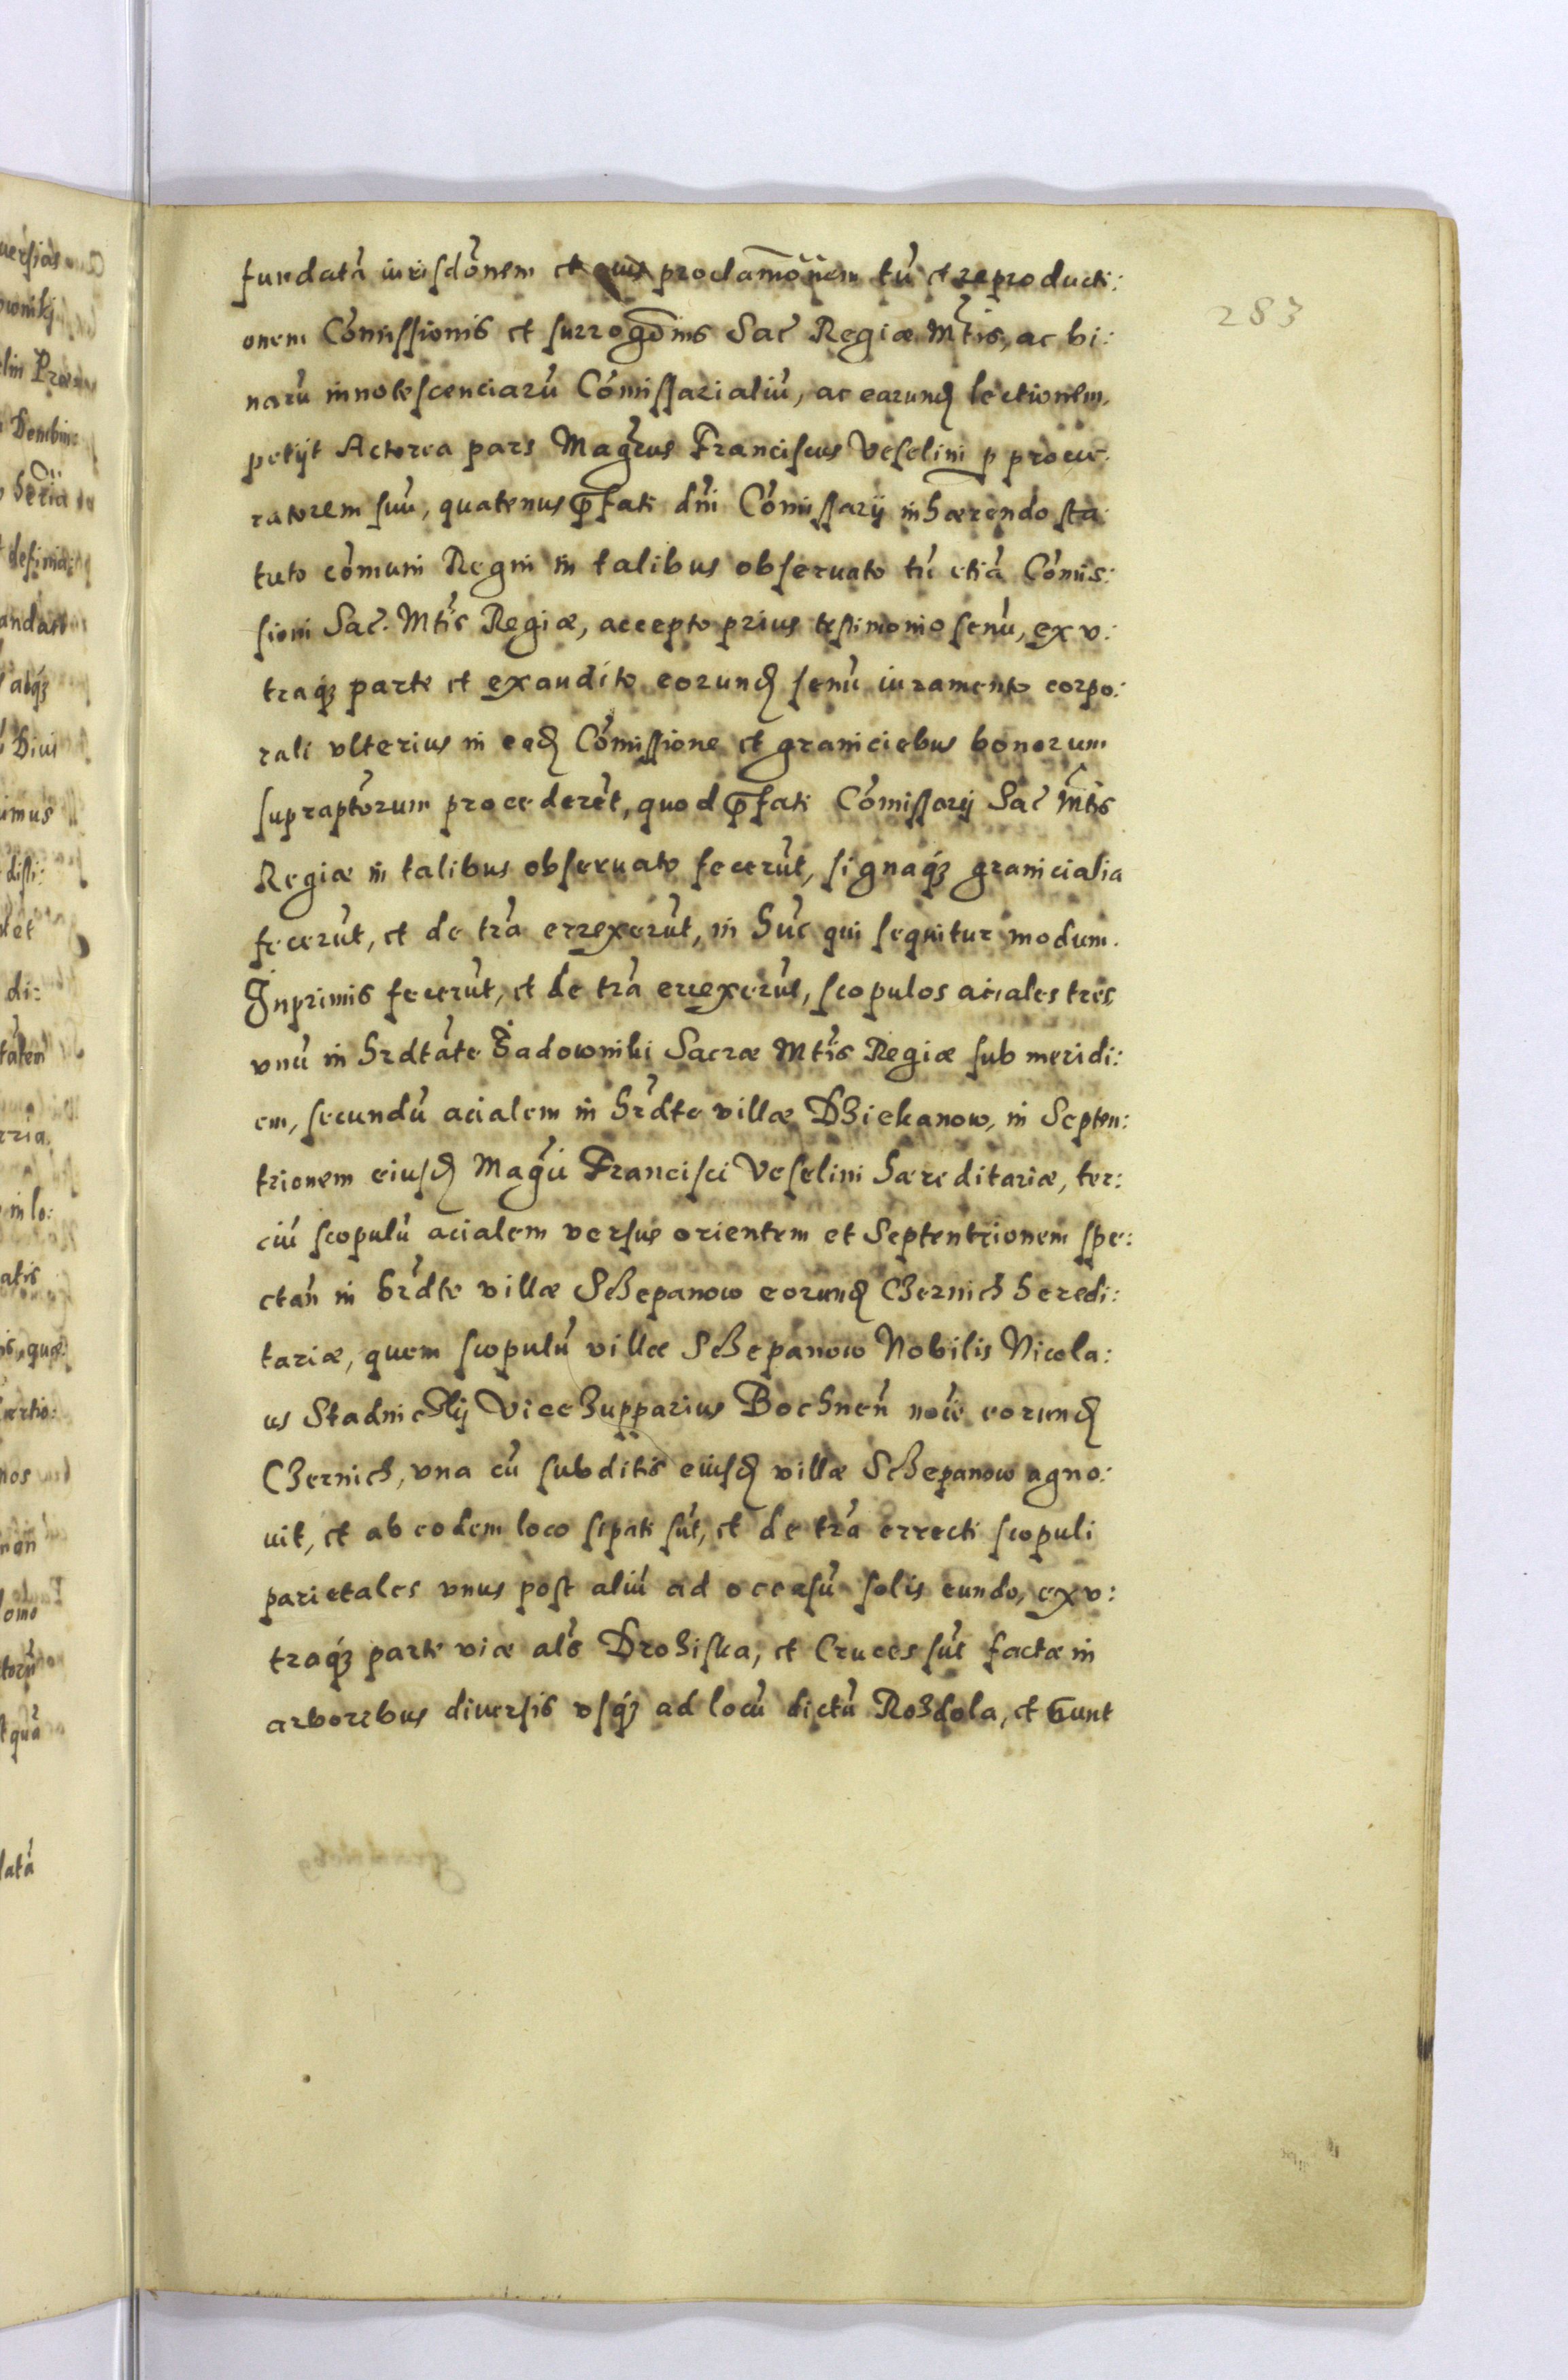 fundatā iurisdōnem et eius proclamōnem tū et reproducti:
283
onem Cōmissionis et surrogōnis Sac Regiæ Mtis, ac bi:
narū innotescenciarū Cōmissarialiū, ac earunđ lectionem,
petijt Actorea pars Magcus Franciscus Veselini p procu:
ratorem suū, quatenus p̄fati dn̄i Cōmissarij inhærendo sta:
tuto cōmuni Regni in talibus obseruato tū etiā Cōmis:
sioni Sac. Mtis Regiæ, accepto prius testimonio senū, ex v:
traq3 parte et exaudito eorunđ senū iuramento corpo:
rali vlterius in eađ Cōmissione et graniciebus bonorum
supraptorum procederēt, quod p̄fati Cōmissarij Sac Mtis
Regiæ in talibus obseruato fecerūt, signaq3 granicialia
fecerūt, et de trā errexerūt, in hūc qui sequitur modum.
Inprimis fecerūt, et de trā errexerūt, scopulos aciales tres,
vnū in hrdtāte Sadowniki Sacræ Mtis Regiæ sub meridi:
em, secundū acialem in hrdte villæ Dziekanow, in Septen:
trionem eiusđ Magci Francisci Veselini hæreditariæ, ter:
ciū scopulū acialem versus orientem et Septentrionem spe:
ctan̄ in hrdte villæ Sczepanow eorunđ Czernich heredi:
tariæ, quem scopulū villæ Sczepanow Nobilis Nicola:
us Stadnicky Vicezupparius Bochnen̄ noīe eorunđ
Czernich, vna cū subditis eiusđ villæ Sczepanow agno:
uit, et ab eodem loco sipati sūt, et de trā errecti scopuli
parietales vnus post aliū ad occasū solis eundo, ex v:
traq3 parte viæ als Droziska, et Cruces sūt factæ in
arboribus diuersis vsq3 ad locū dictū Rozdola, et sunt